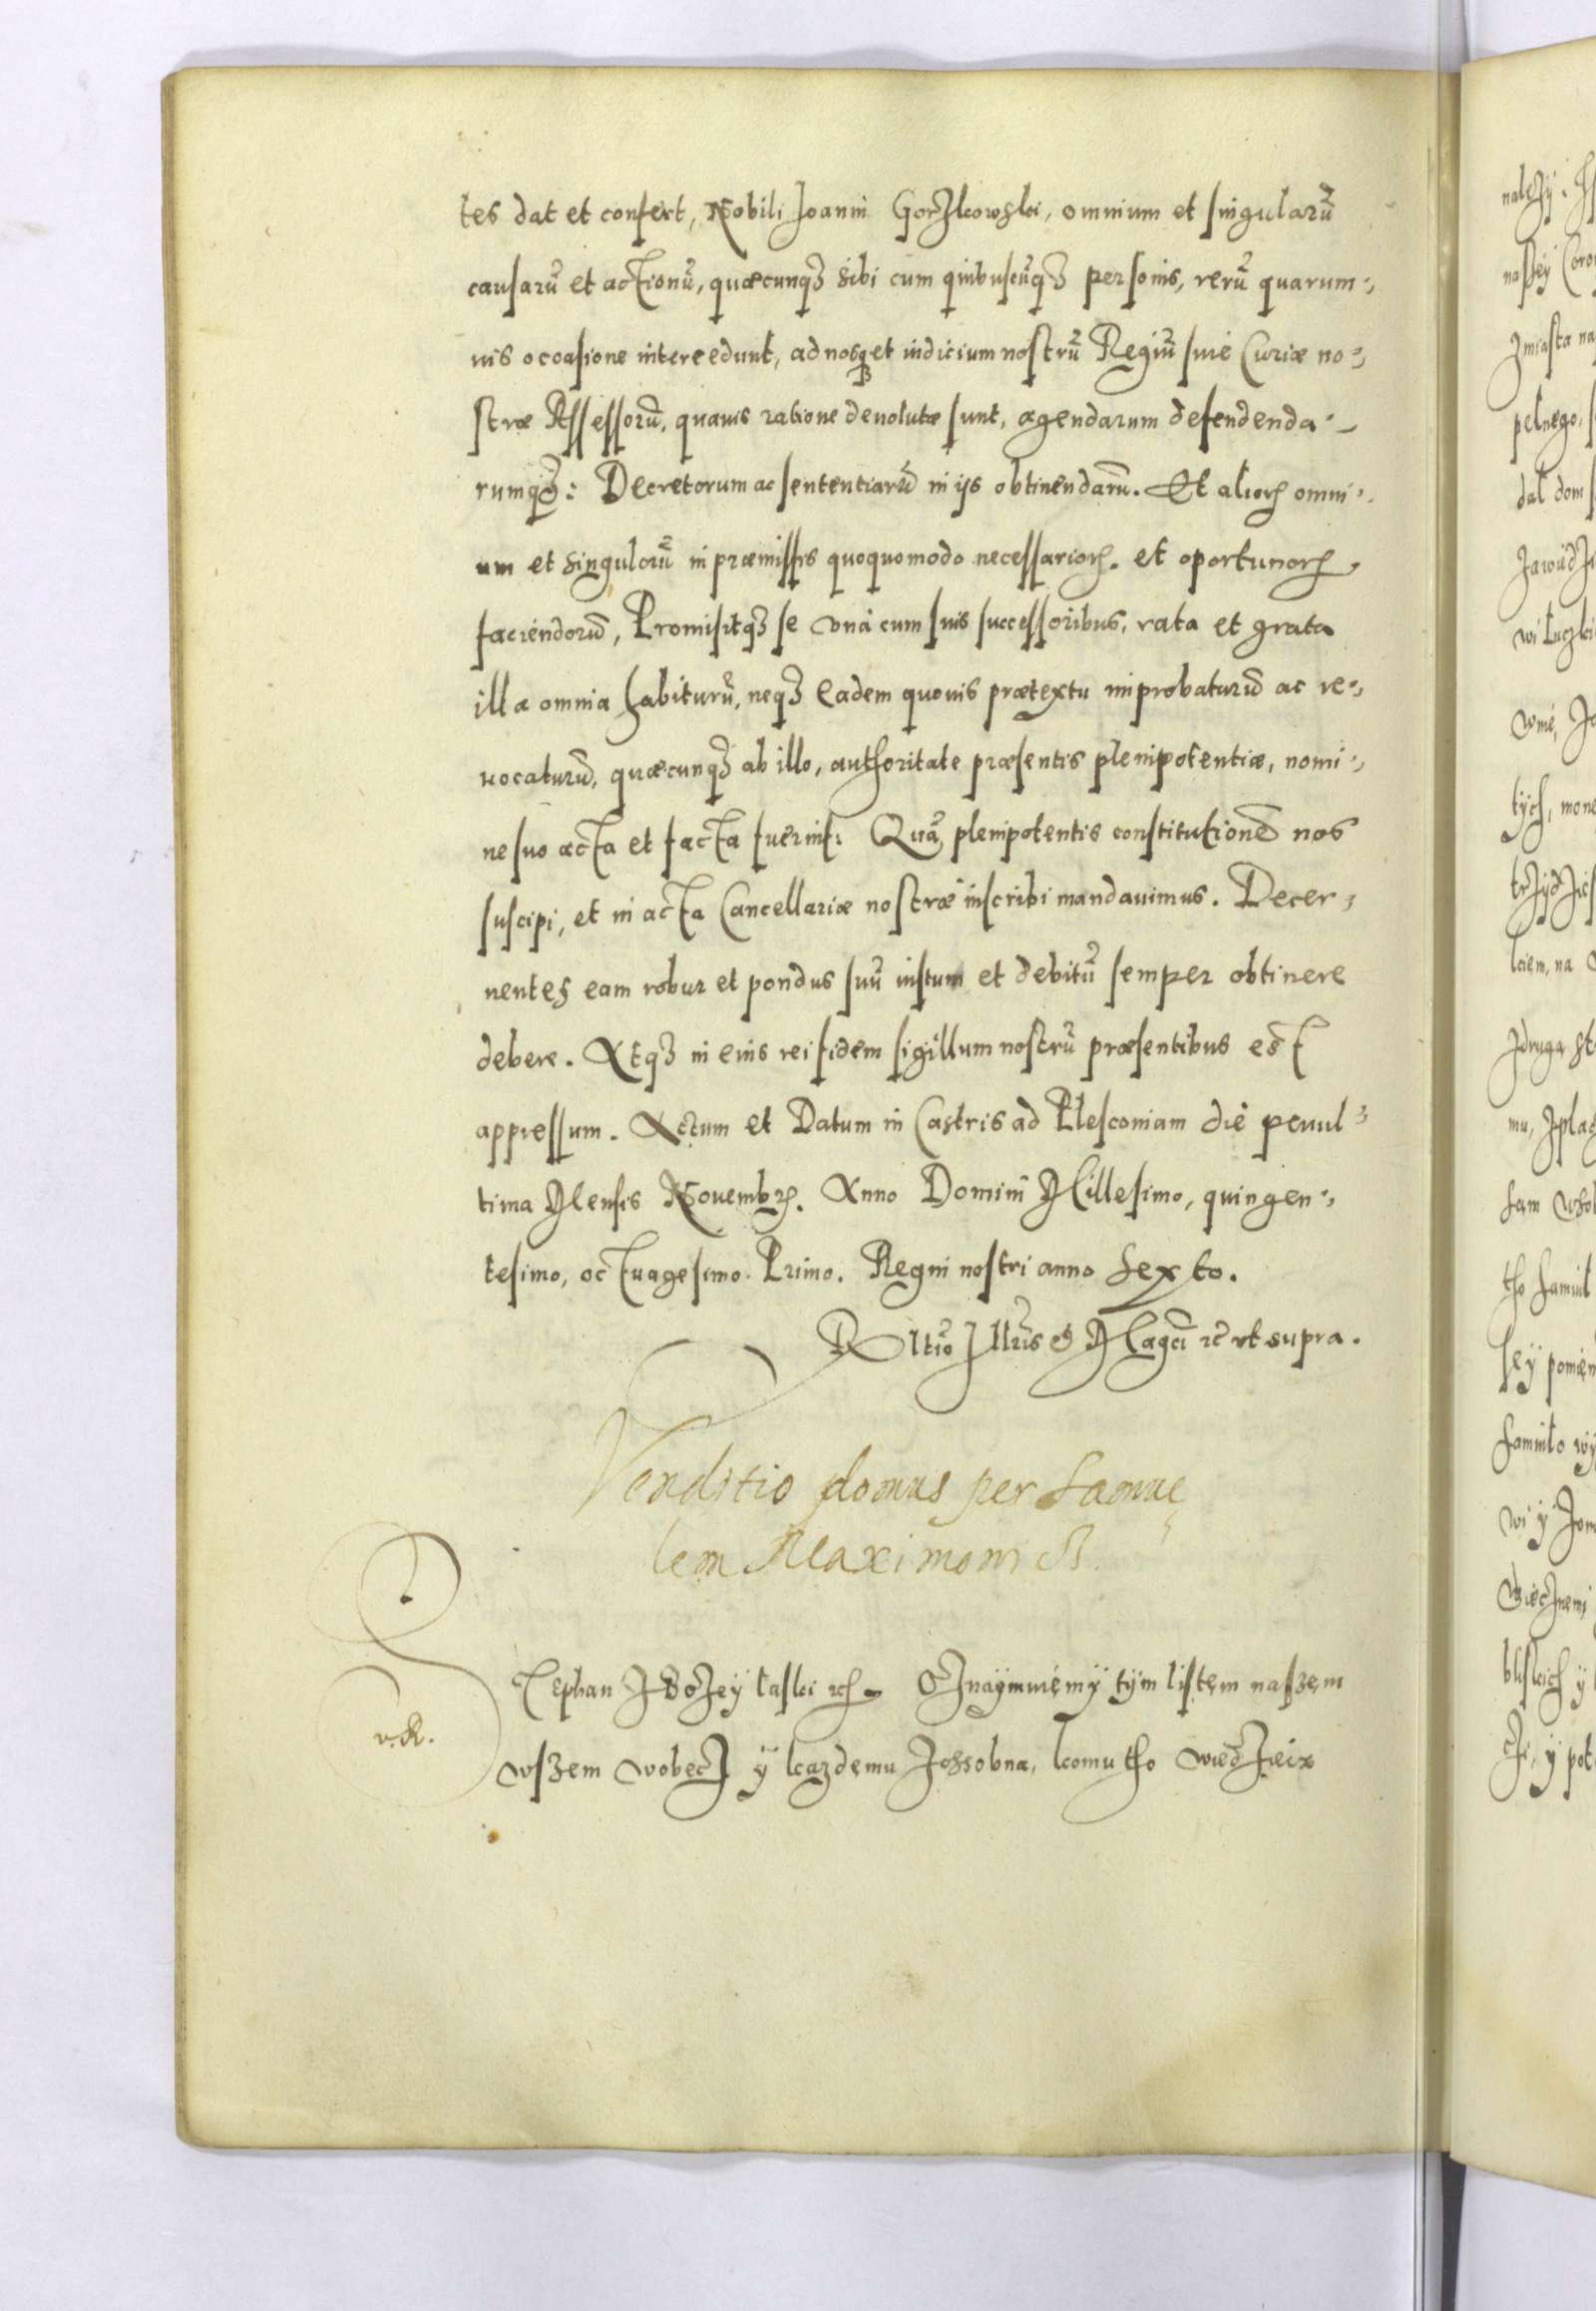 tes dat et confert, Nobili Joanni Gorzkowski, omnium et singularũ
causarũ et actionũ, quæcunq₃ sibi cum quibuscũq₃ personis, rerũ quarum-
uis occasione intercedunt, ad nosq₃ et iudicium nostrũ Regiũ siue Curiæ no-
stræ Assessorũ, quauis ratione deuolutæ sunt, agendarum defendenda-
rumq₃: Decretorum ac sententiarũ in ijs obtinendarũ. Et alioꝝ omni-
um et singulorũ in præmissis quoquomodo necessarioꝝ. et oportunoꝝ
faciendorũ, Promisitq₃ se vná cum suis successoribus, rata et grata
illa omnia habiturũ, neq₃ eadem quouis prætextu improbaturũ ac re-
uocaturũ, quæcunq₃ ab illo, authoritate præsentis plenipotentiæ, nomi-
ne suo acta et facta fuerint. Quã plenipotentis constitutionẽ nos
suscipi, et in acta Cancellariæ nostræ inscribi mandauimus. Decer-
nentes eam robur et pondus suũ iustum et debitũ semper obtinere
debere. Atq₃ in eius rei fidem sigillum nostrũ præsentibus est
appressum. Actum et Datum in Castris ad Plesconiam die penul-
tima Mensis Nouembꝝ. Anno Domini Millesimo, quingen-
tesimo, octuagesimo Primo. Regni nostri anno Sexto.
Rltio Illris et Magci ꝛc̃ vt supra.
Venditio domus per Samue
lem Maximoni
Stephan Z Bozey laski ꝛc̃ Oznaymuiemÿ tÿm listem naszem
wszem wobecz ÿ kazdemu zossobna, komu tho wiedziecz
v. R.